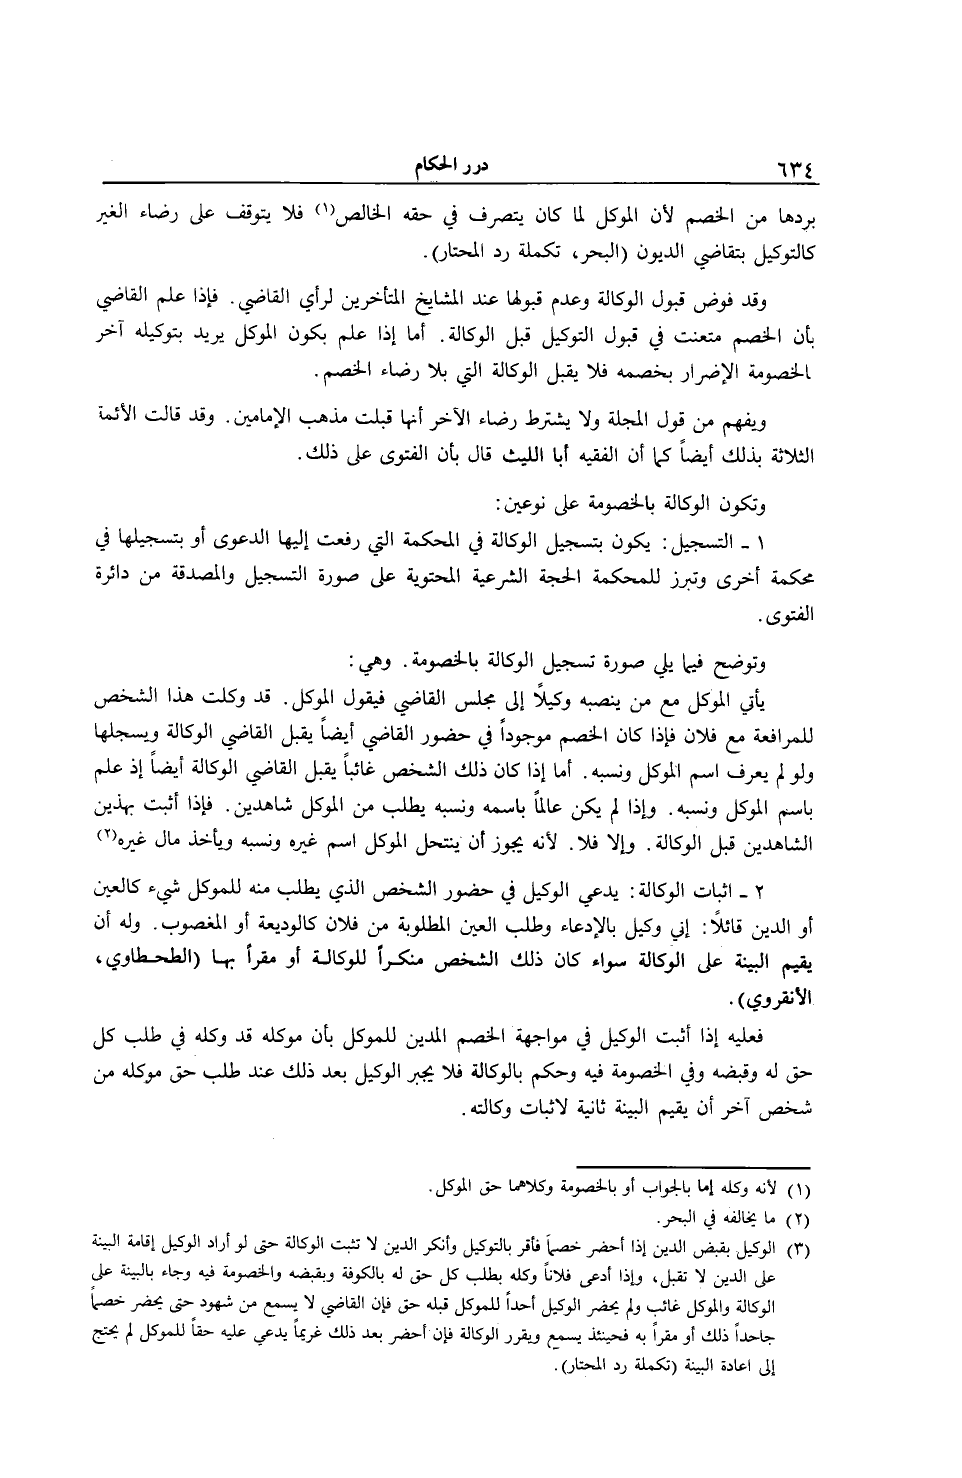 ٦٣٤ درر الحكام
بردها من الخصم لأن الموكل لما كان يتصرف في حقه الخالص(١) فلا يتوقف على رضاء الغير
كالتوكيل بتقاضي الديون (البحر، تكملة رد المحتار).
وقد فوض قبول الوكالة وعدم قبولها عند المشايخ المتأخرين لرأي القاضي. فإذا علم القاضي
بأن الخصم متعنت في قبول التوكيل قبل الوكالة. أما إذا علم بكون الموكل يريد بتوكيله آخر
بالخصومة الإضرار بخصمه فلا يقبل الوكالة التي بلا رضاء الخصم.
ويفهم من قول المجلة ولا يشترط رضاء الآخر أنها قبلت مذهب الإمامين. وقد قالت الأئمة
الثلاثة بذلك أيضاً كما أن الفقيه أبا الليث قال بأن الفتوى على ذلك.
وتكون الوكالة بالخصومة على نوعين:
١ ـ التسجيل: يكون بتسجيل الوكالة في المحكمة التي رفعت إليها الدعوى أو بتسجيلها في
محكمة أخرى وتبرز للمحكمة الحجة الشرعية المحتوية على صورة التسجيل والمصدقة من دائرة
الفتوى.
وتوضح فيما يلي صورة تسجيل الوكالة بالخصومة. وهي:
يأتي الموكل مع من ينصبه وكيلاً إلى مجلس القاضي فيقول الموكل. قد وكلت هذا الشخص
للمرافعة مع فلان فإذا كان الخصم موجوداً في حضور القاضي أيضاً يقبل القاضي الوكالة ويسجلها
ولو لم يعرف اسم الموكل ونسبه. أما إذا كان ذلك الشخص غائباً يقبل القاضي الوكالة أيضاً إذ علم
باسم الموكل ونسبه. وإذا لم يكن عالماً باسمه ونسبه يطلب من الموكل شاهدين. فإذا أثبت بهذين
الشاهدين قبل الوكالة. وإلا فلا. لأنه يجوز أن ينتحل الموكل اسم غيره ونسبه ويأخذ مال غيره(٢)
٢ ـ اثبات الوكالة: يدعي الوكيل في حضور الشخص الذي يطلب منه للموكل شيء كالعين
أو الدين قائلاً: إني وكيل بالإدعاء وطلب العين المطلوبة من فلان كالوديعة أو المغصوب. وله أن
يقيم البينة على الوكالة سواء كان ذلك الشخص منكراً للوكالة أو مقراً بها (الطحطاوي،
الأنقروي).
فعليه إذا أثبت الوكيل في مواجهة الخصم المدين للموكل بأن موكله قد وكله في طلب كل
حق له وقبضه وفي الخصومة فيه وحكم بالوكالة فلا يجبر الوكيل بعد ذلك عند طلب حق موكله من
شخص آخر أن يقيم البينة ثانية لاثبات وكالته.
(١) لأنه وكله إما بالجواب أو بالخصومة وكلاهما حق الموكل.
(٢) ما يخالفه في البحر.
(٣) الوكيل بقبض الدين إذا أحضر خصماً فأقر بالتوكيل وأنكر الدين لا تثبت الوكالة حتى لو أراد الوكيل إقامة البينة
على الدين لا تقبل، وإذا أدعى فلاناً وكله بطلب كل حق له بالكوفة وبقبضه والخصومة فيه وجاء بالبينة على
الوكالة والموكل غائب ولم يحضر الوكيل أحداً للموكل قبله حق فإن القاضي لا يسمع من شهود حتى يحضر خصماً
جاحداً ذلك أو مقراً به فحينئذ يسمع ويقرر الوكالة فإن أحضر بعد ذلك غريماً يدعي عليه حقاً للموكل لم يحتج
إلى اعادة البينة (تكملة رد المحتار).